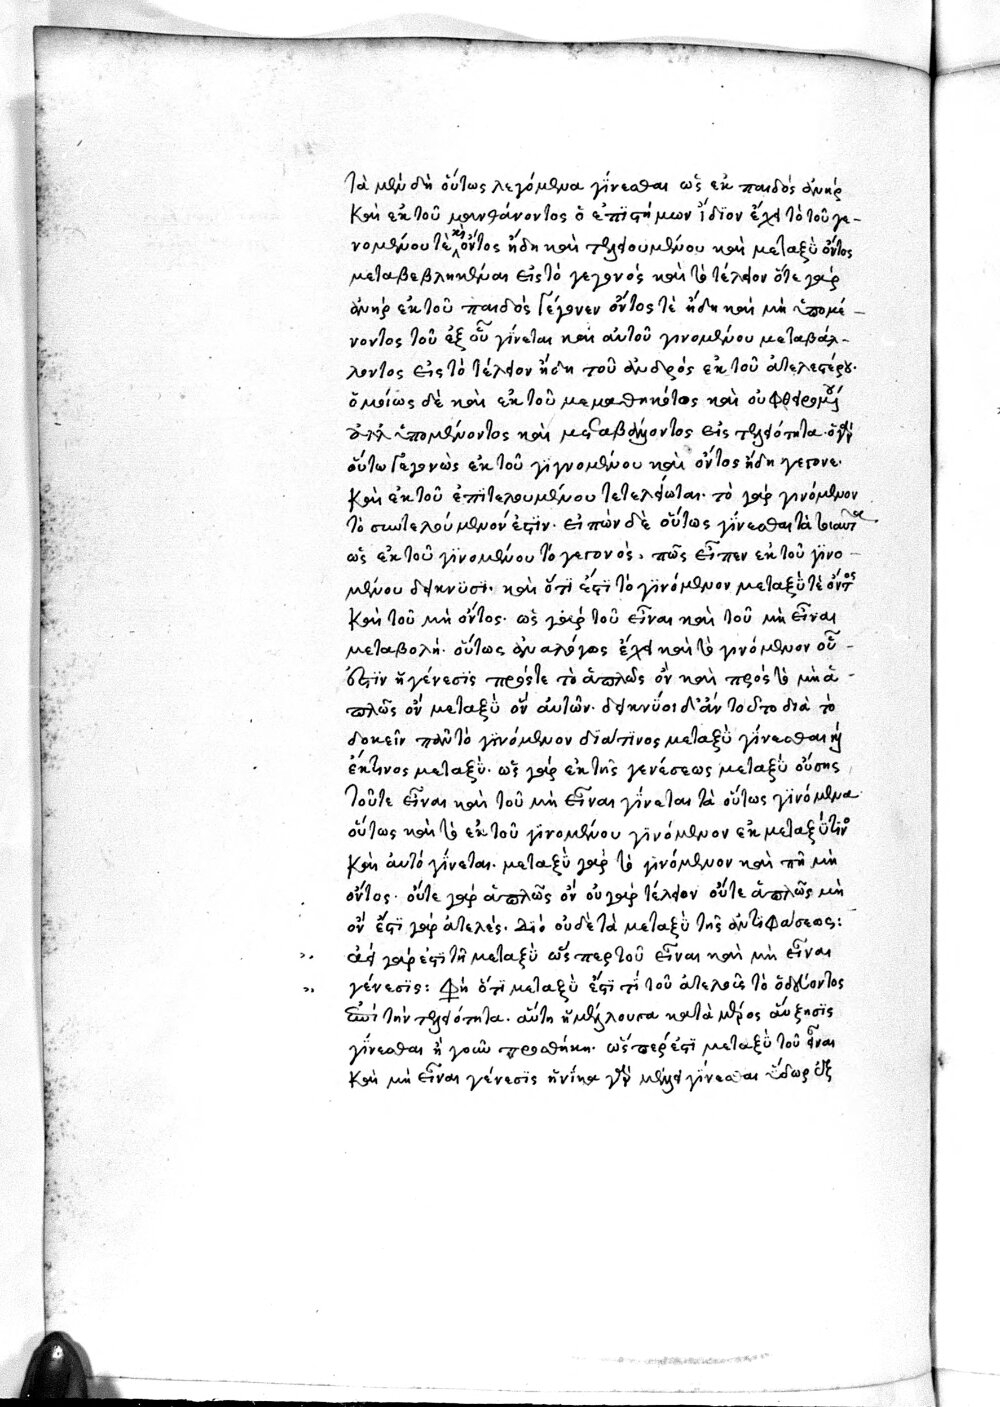 τὰ μὲν δὴ οὕτως λεγόμενα γίνεσθαι ὡς ἐκ παιδὸς ἀνὴρ
καὶ ἐκ τοῦ μανθάνοντος ὁ ἐπιστήμων ἴδιον ἔχει τὸ τοῦ γε-
νομένου τὲ κ(αὶ) ὄντος ἤδη καὶ τελειουμένου καὶ μεταξὺ ὄντος
μεταβεβληκέναι εἰς τὸ γεγονὸς καὶ τὸ τέλειον ὅτε γὰρ
ἀνὴρ ἐκ τοῦ παιδὸς γέγονεν ὄντος τὲ ἤδη καὶ μὴ ὑπομέ-
νοντος τοῦ ἐξ οὗ γίνεται καὶ αὐτοῦ γινομένου μεταβάλ-
λοντος εἰς τὸ τέλειον ἤδη τοῦ ἀνδρὸς ἐκ τοῦ ἀτελεστέρου·
ὁμοίως δὲ καὶ ἐκ τοῦ μεμαθηκότος καὶ οὐ φθειρομ(έν)ου
ὑπομένοντος καὶ μεταβάλοντος εἰς τελειότητα·
οὕτω γεγονὼς ἐκ τοῦ γιγνομένου καὶ ὄντος ἤδη γέγονε·
καὶ ἐκ τοῦ ἐπιτελουμένου τετελείωται· τὸ γὰρ γινόμενον
τὸ συντελούμενόν ἐστιν· εἰπὼν δὲ οὕτως γίνεσθαι τὰ τοιαῦτα
ὡς ἐκ τοῦ γινομένου τὸ γεγονός, πῶς εἶπεν ἐκ τοῦ γινο-
μένου δείκνυσι· καὶ ὅτι ἐστὶ τὸ γινόμενον μεταξὺ τὲ ὄντος
καὶ τοῦ μὴ ὄντος· ὡς γὰρ τοῦ εἶναι καὶ τοῦ μὴ εἶναι
μεταβολή· οὕτως ἀναλόγως ἔχει καὶ τὸ γινόμενον οὗ
ἐστιν ἡ γένεσις πρός τε τὸ ἁπλῶς ὂν καὶ πρὸς τὸ μὴ ἁ-
πλῶς ὂν μεταξὺ ὂν αὐτῶν· δεικνύοι δ' ἂν τοῦτο διὰ τὸ
δοκεῖν πᾶν τὸ γινόμενον διά τινος μεταξὺ γίνεσθαι ἢ
ἔκ τινος μεταξύ· ὡς γὰρ ἐκ τῆς γενέσεως μεταξὺ οὔσης
τοῦτε εἶναι καὶ τοῦ μὴ εἶναι γίνεται τὰ οὕτως γινόμενα·
οὕτως καὶ τὸ ἐκ τοῦ γινομένου γινόμενον ἐκ μεταξύ τινο(ς)
καὶ αὐτὸ γίνεται· μεταξὺ γὰρ τὸ γινόμενον καὶ πῆ μὴ
ὄντος· οὔτε γὰρ ἁπλῶς ὂν οὐ γὰρ τέλειον οὔτε ἁπλῶς μὴ
ὂν ἔστι γὰρ ἀτελές· διὸ οὐδὲ τὰ μεταξὺ τῆς ἀντιφάσεως:
ἀεὶ γάρ ἐστι τῆ μεταξὺ ὥσπερ τοῦ εἶναι καὶ μὴ εἶναι
γένεσις: φη ὅτι μεταξὺ ἐστί τι τοῦ ἀτελοῦς τὸ ὁδεύοντος
ἐπὶ τὴν τελειότητα· αὕτη ἡ μέλλουσα κατὰ μέρος αὔξησις
γίνεσθαι ἢ γοῦν προσθήκη· ὥσπερ ἐστὶ μεταξὺ τοῦ εἶναι
καὶ μὴ εἶναι γένεσις ἡνίκα γὰρ μέλλει γίνεσθαι ὕδωρ ἐξ